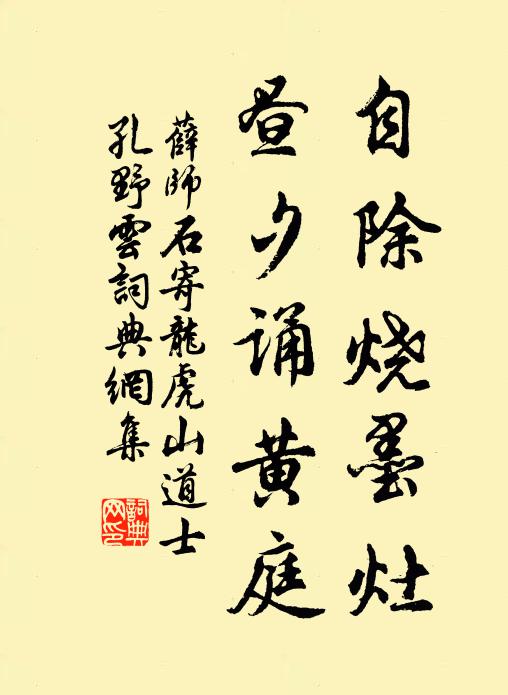 自除烧墨灶
昼夕诵黄庭
薛师石寄龍虎山道士
孔野雲詞典網集
詞典
网印